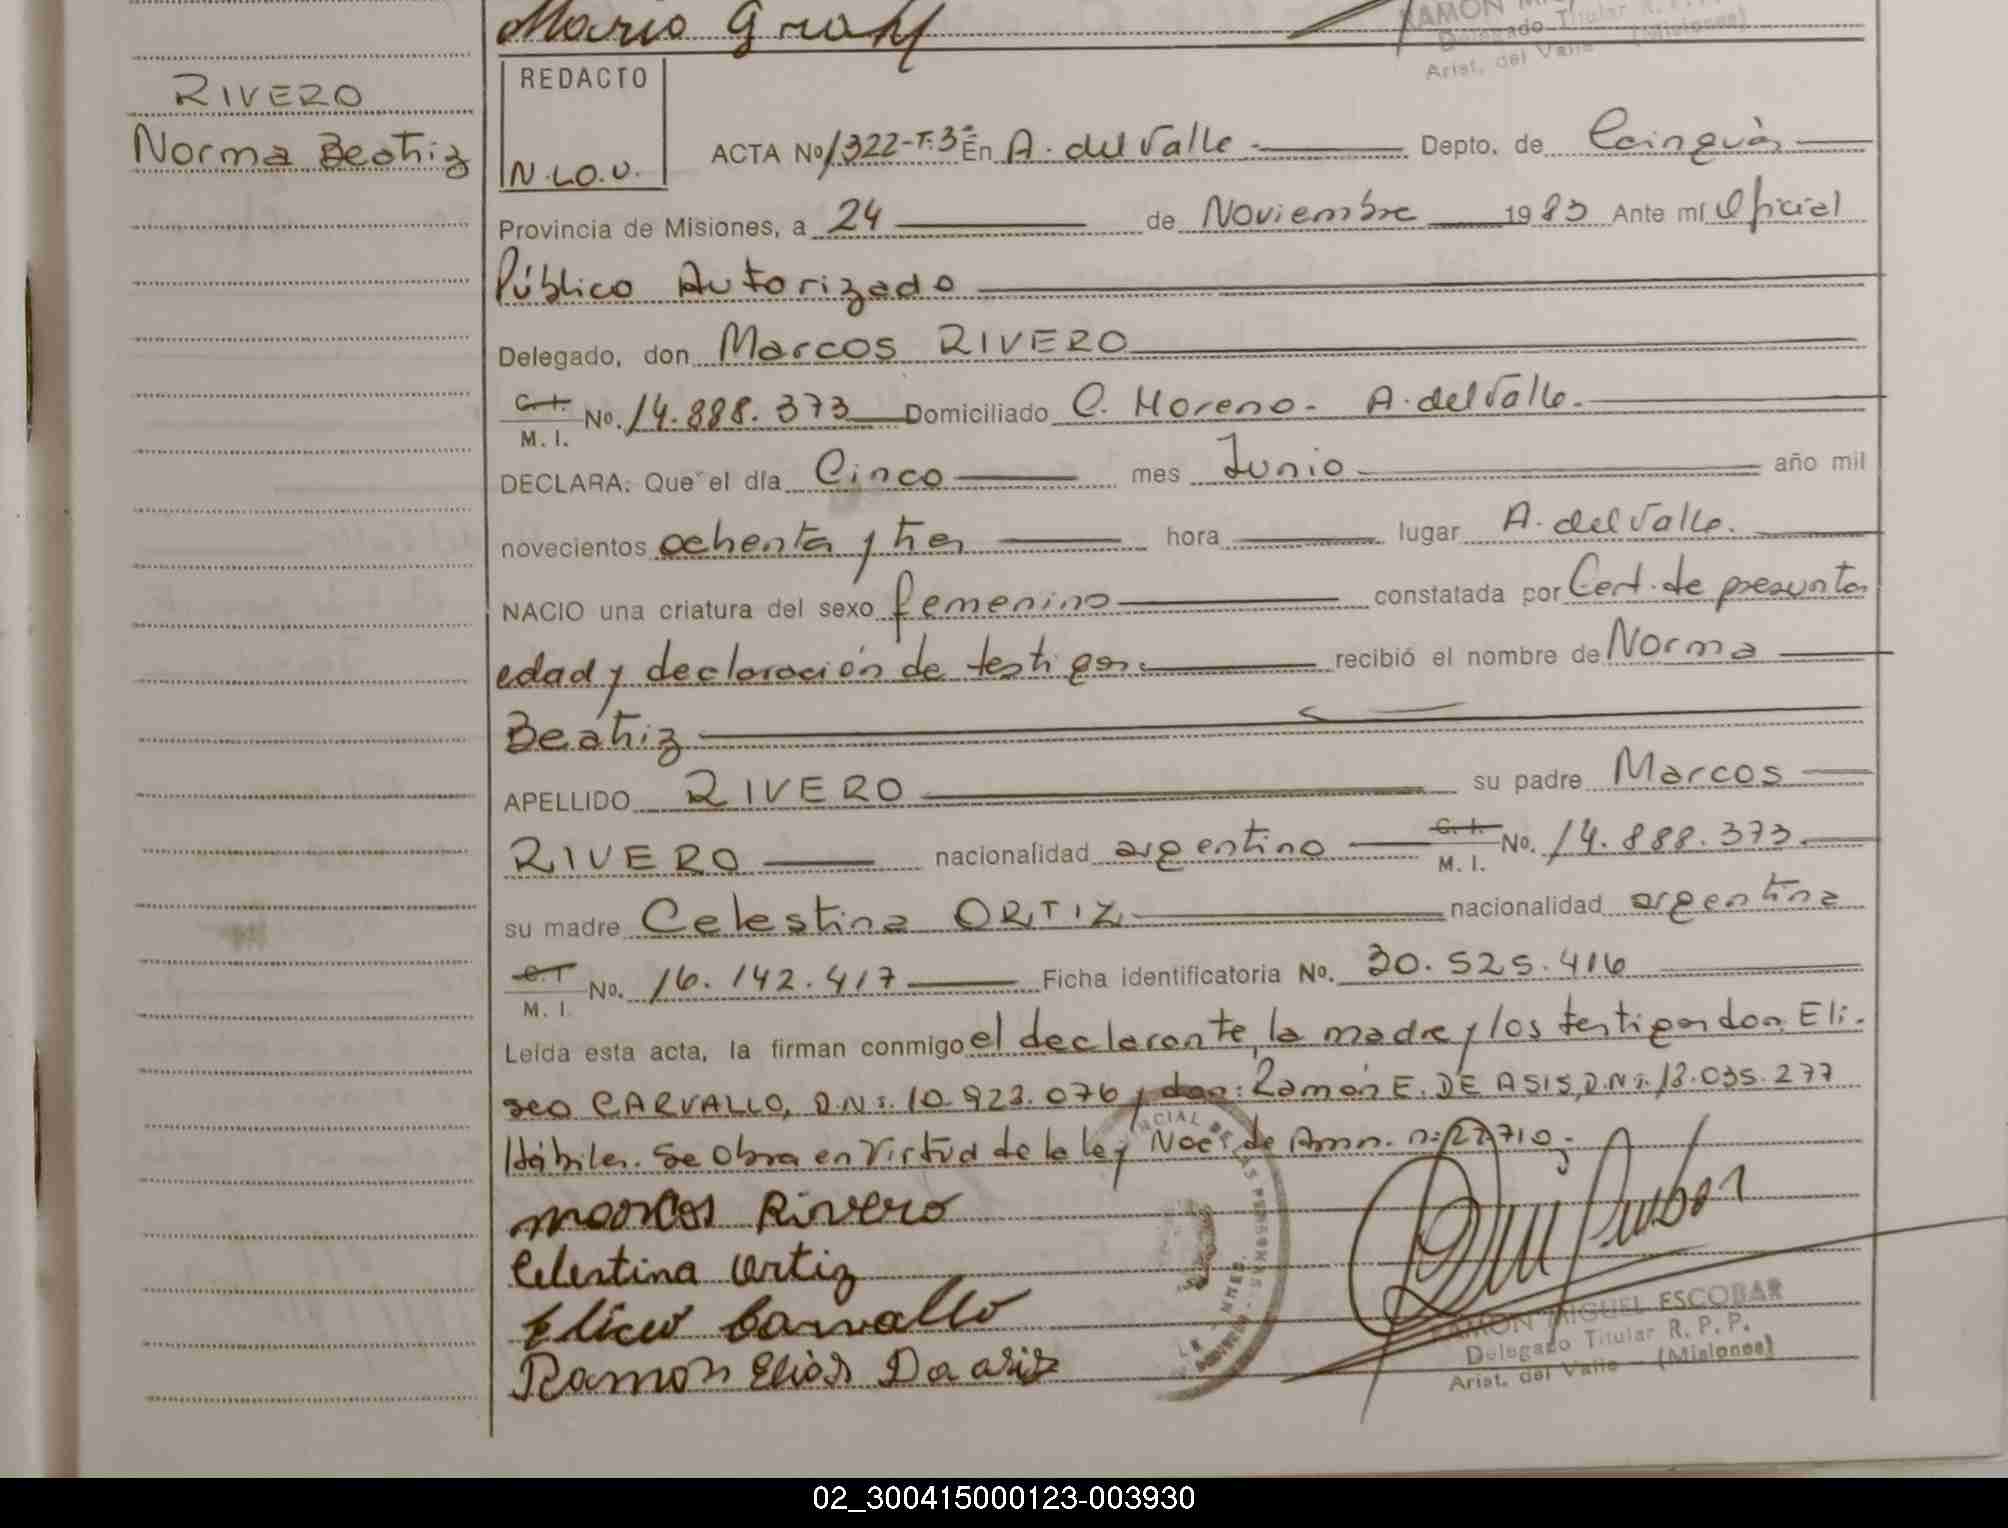 Mario Graff
RAMON MI
Delegado Titular R. P. P.
Arist. del Valle (Misiones)
RIVERO
Norma Beatriz
REDACTO
N.LO.U.
ACTA Nº 1322-T:3º En A. del Valle - Depto. de Cainguás
Provincia de Misiones, a 24 de Noviembre 1983 Ante mí Oficial
Público Autorizado
Delegado, don Marcos RIVERO
C. I.
M. I. No. 14.888.373 Domiciliado C. Moreno - A. del Valle.
DECLARA: Que el día Cinco mes Junio año mil
novecientos ochenta y tres hora lugar A. del Valle.
NACIO una criatura del sexo femenino constatada por Cert. de presunta
edad y declaración de testigos. recibió el nombre de Norma
Beatriz
APELLIDO RIVERO su padre Marcos
RIVERO nacionalidad argentino C. I. M. I. No. 14.888.373.
su madre Celestina ORTIZ nacionalidad argentina
C. I. M. I. No. 16.142.417 Ficha identificatoria No. 30.525.416
Leída esta acta, la firman conmigo el declarante, la madre y los testigos don Eli-
seo CARVALLO, D.N.I. 10.923.076 y don: Ramón E. DE ASIS, D.N.I. 13.035.277
Hábiles. Se obra en virtud de la ley Nac. de Amn. nº 22.710.
marcos Rivero
Celestina Ortiz
Eliceo Carvallo
Ramon Elias Da asis
RAMON MIGUEL ESCOBAR
Delegado Titular R. P. P.
Arist. del Valle - (Misiones)
02_300415000123-003930